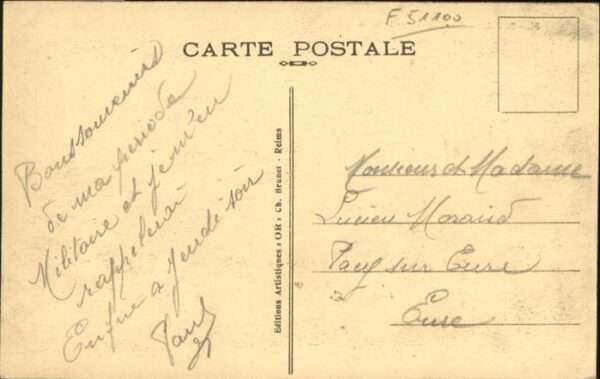 F 51100
CARTE POSTALE
Bons souvenirs
de ma période
Militaire et je m'en
rappelerai
Enfin a jeudi soir
Paul
Editions Artistiques "OR" Ch. Brunel - Reims
Monsieur et Madame
Lucien Morand
Pacy sur Eure
Eure